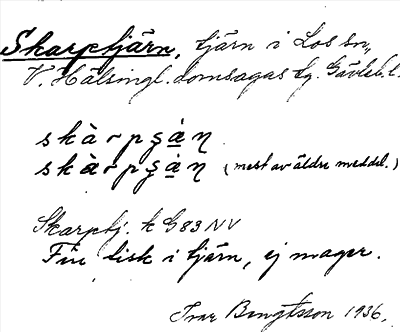 Skarptjärn, tjärn i Los sn,
V. Hälsingl. domsagas tg. Gävleb. l.
skàrpşȧ̱ƞ
skàrpşȧ̱ƞ (mest av äldre meddel.)
Skarptj. k G83 NV
Fin fisk i tjärn, ej mager.
Ivar Bengtsson 1936.